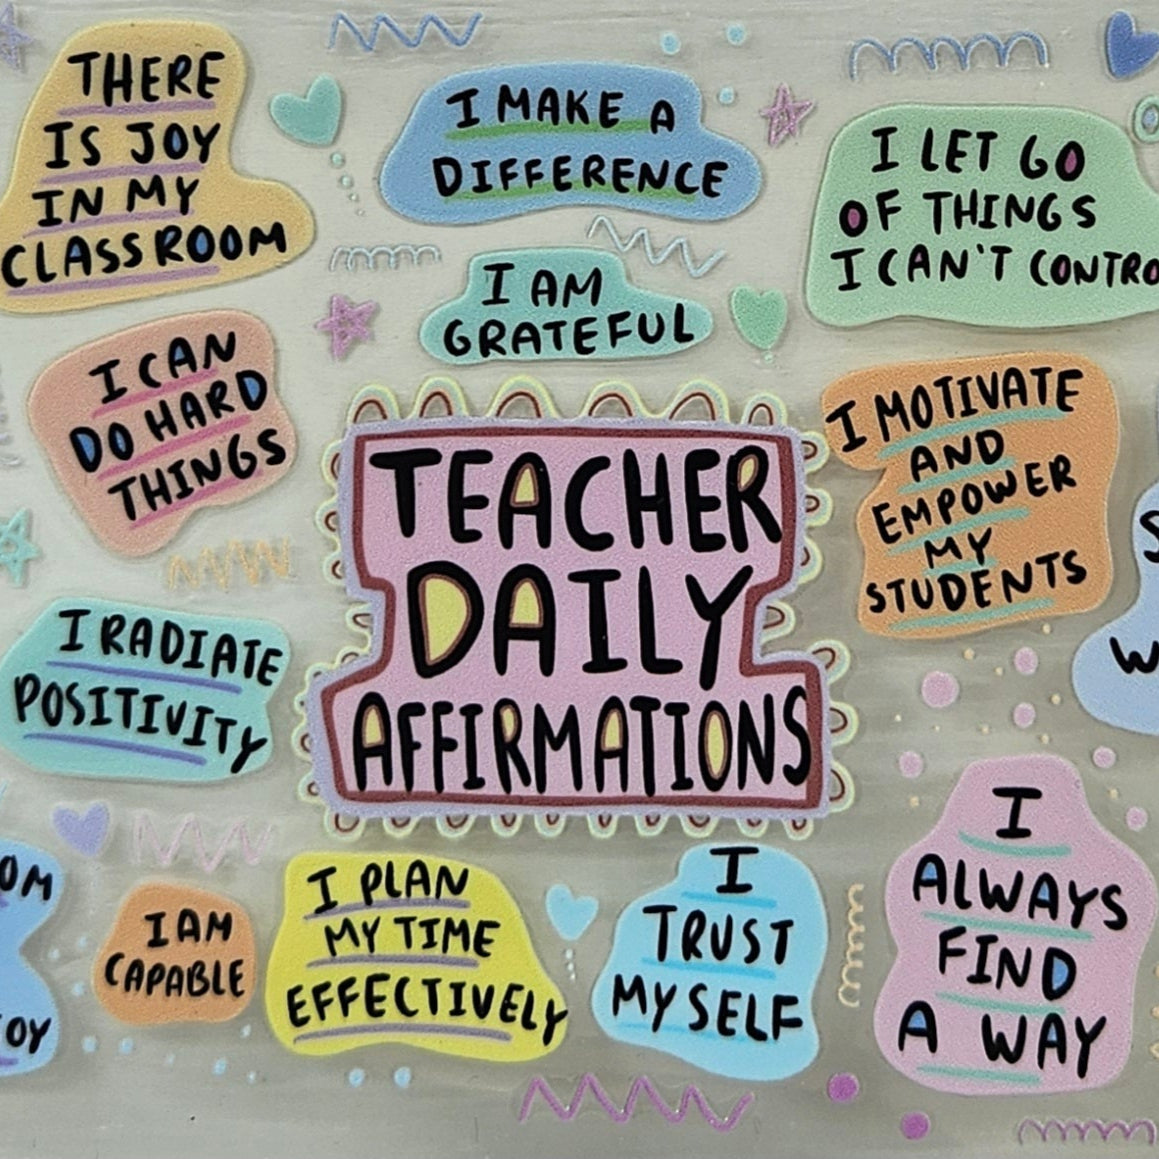 THERE
IS JOY
IN MY
CLASSROOM
I MAKE A
DIFFERENCE
I LET GO
OF THINGS
I CAN'T
I AM
GRATEFUL
I CAN
DO HARD
THINGS
I MOTIVATE
AND
EMPOWER
MY
STUDENTS
TEACHER
DAILY
AFFIRMATIONS
I RADIATE
POSITIVITY
I AM
CAPABLE
I PLAN
MY TIME
EFFECTIVELY
I
TRUST
MYSELF
I
ALWAYS
FIND
A WAY